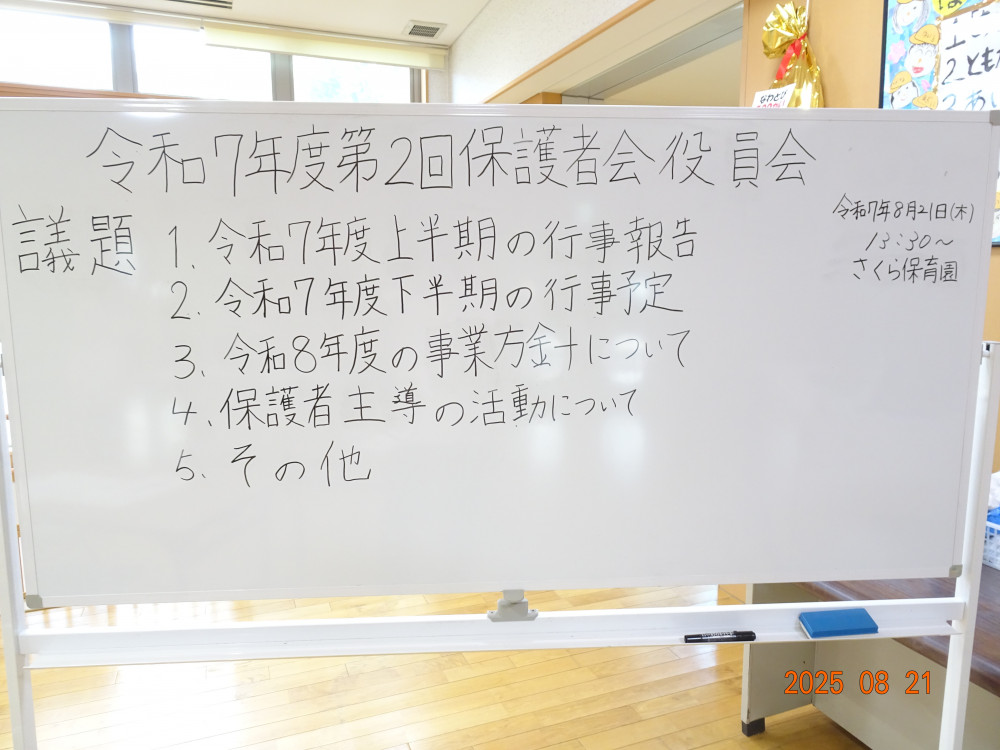 令和7年度第2回保護者会役員会
令和7年8月21日(木)
13:30~
さくら保育園
議題
1. 令和7年度上半期の行事報告
2. 令和7年度下半期の行事予定
3. 令和8年度の事業方針について
4. 保護者主導の活動について
5. その他
なわとび
2. とも
2025 08 21